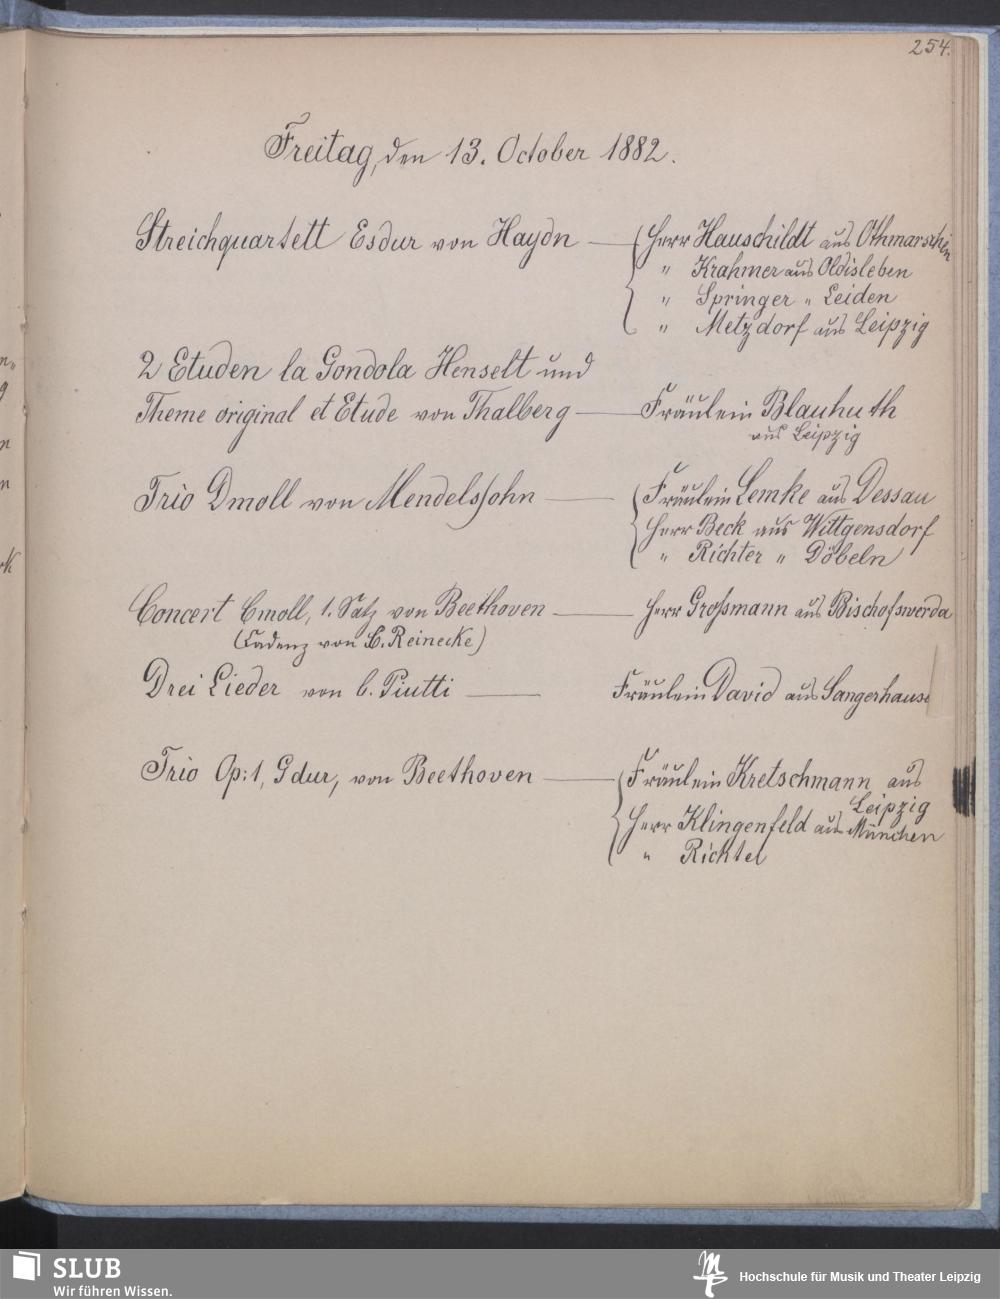 254.
Freitag, den 13. October 1882.
Streichquartett Esdur von Haydn — Herr Hauschildt aus Othmarschen
" Krahmer aus Oldisleben
" Springer " Leiden
" Metzdorf aus Leipzig
2 Etuden la Gondola Henselt und
Theme original et Etude von Thalberg — Fräulein Blauhuth
aus Leipzig
Trio Dmoll von Mendelssohn — Fräulein Lemke aus Dessau
Herr Beck aus Wittgensdorf
" Richter " Döbeln
Concert Cmoll, 1. Satz von Beethoven — Herr Grossmann aus Bischofswerda
(Cadenz von C. Reinecke)
Drei Lieder von C. Piutti — Fräulein David aus Sangerhause
Trio Op: 1, Gdur, von Beethoven — Fräulein Kretschmann aus
Leipzig
Herr Klingenfeld aus München
" Richter
SLUB
Wir führen Wissen.
Hochschule für Musik und Theater Leipzig